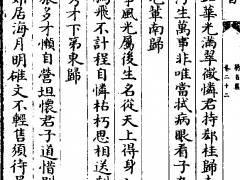 卷二十二
華光滿翠微憐君持郄桂歸
生萬事非唯當拭病眼看子
軍南歸
事風光屬後生名從天上得身
飛不計程自憐枯朽思相送
才下第東歸
多才懶自營坦懷君子道惜別
居海月明確文不輕售須待